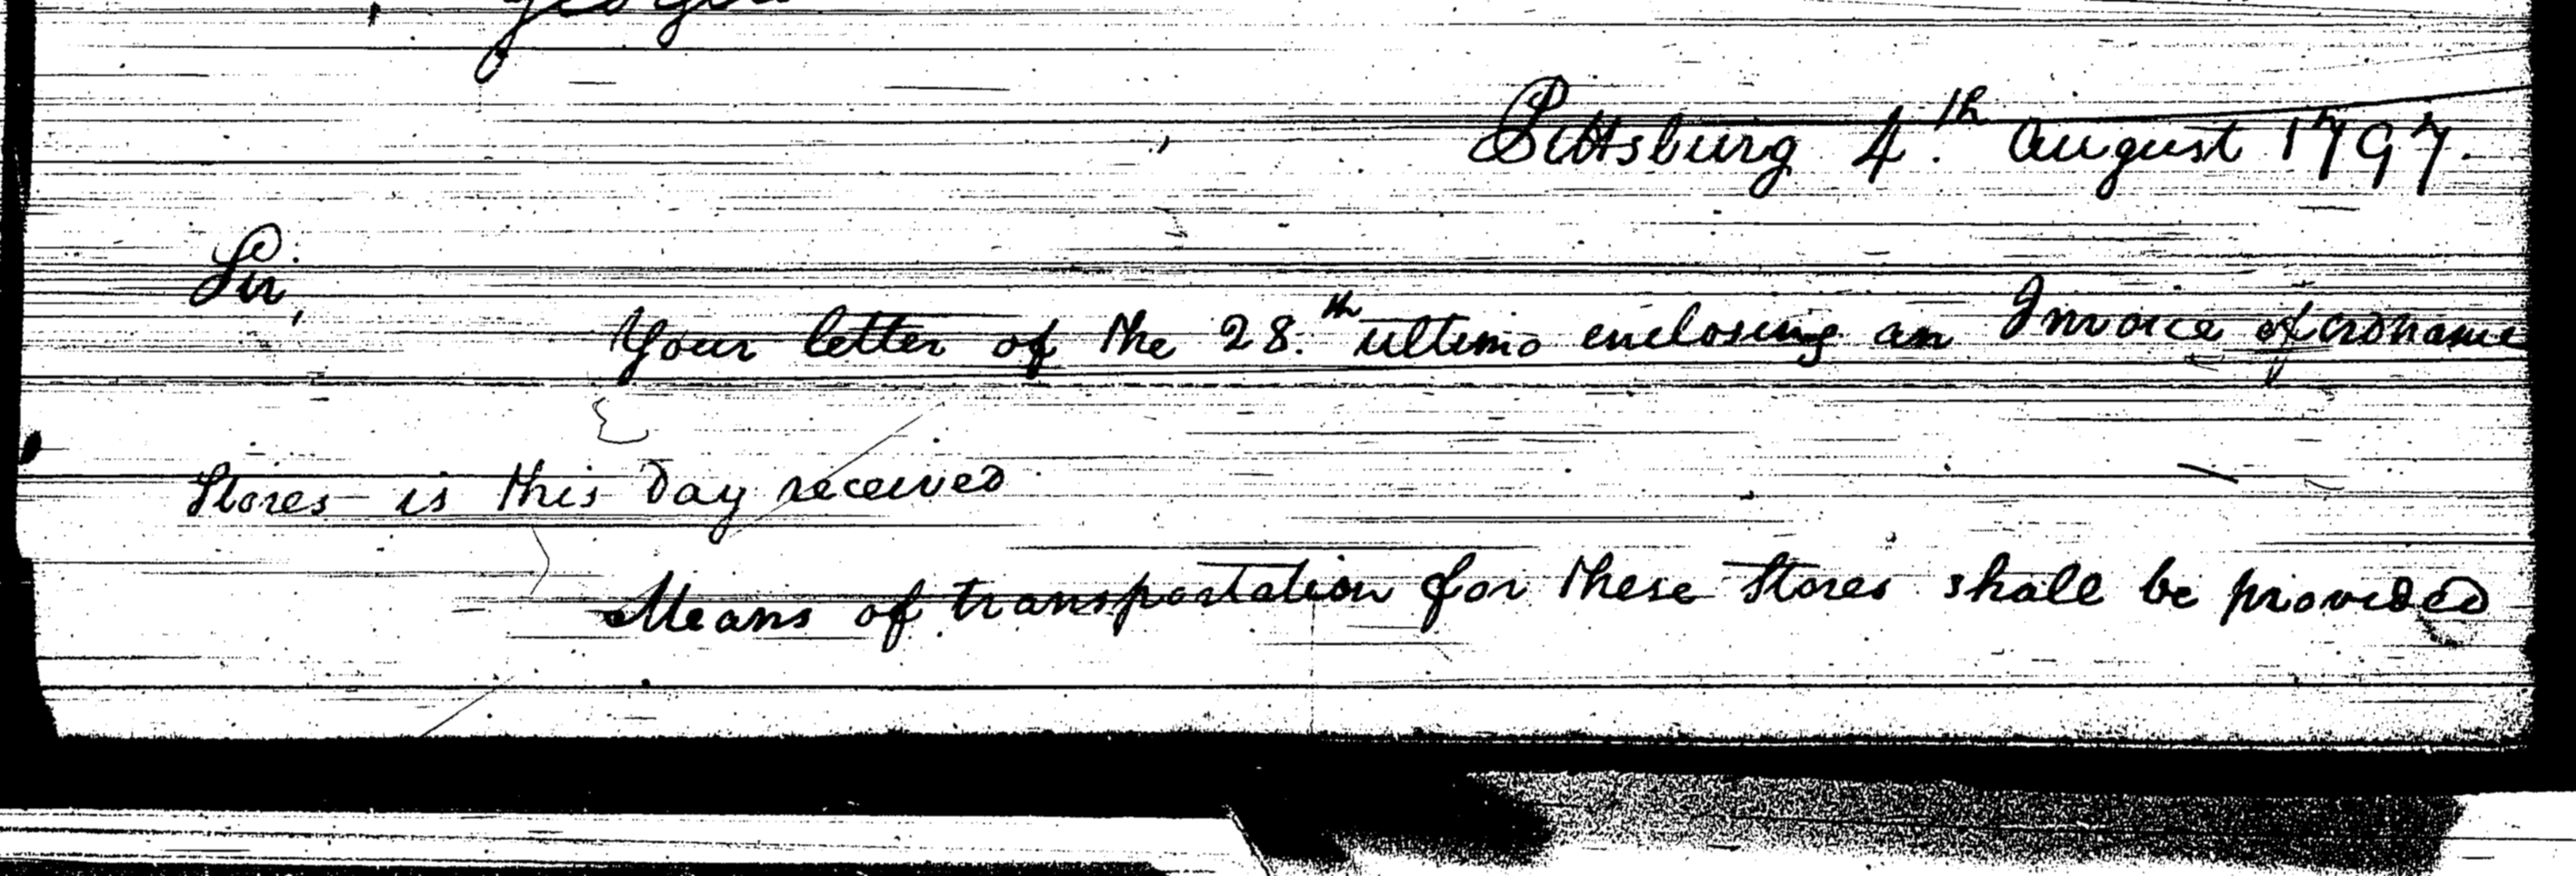 Pittsburg 4th. August 1797.
Sir,
Your letter of the 28.th ultimo enclosing an Invoice of ordnance
Stores is this Day received
Means of transportation for these Stores shall be provided